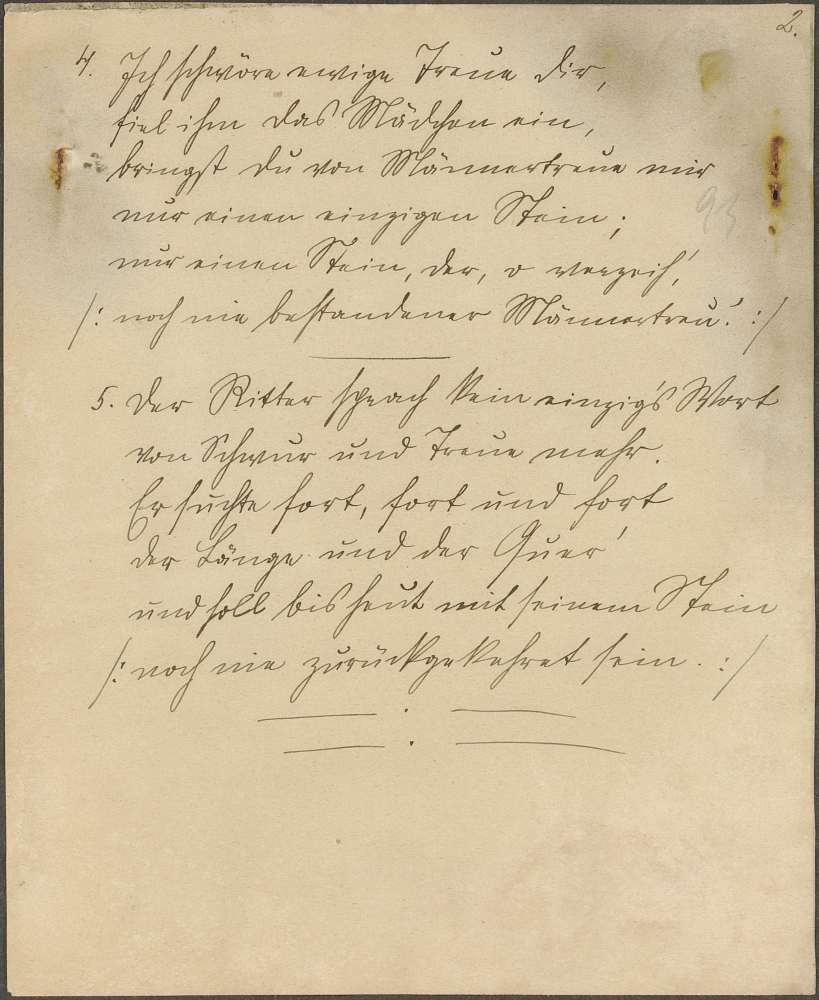 2.
4. Ich schwöre ewige Treue dir,
fiel ihm das Mädchen ein,
bringst du von Männertreue mir
nur einen einzigen Stein;
nur einen Stein, der, o verzeih',
/: noch nie bestandener Männertreu'. :/
93
5. Der Ritter sprach kein einzig's Wort
von Schwur und Treue mehr.
Er suchte fort, fort und fort
der Länge und der Quer'
und soll bis heut mit seinem Stein
/: noch nie zurückgekehret sein. :/